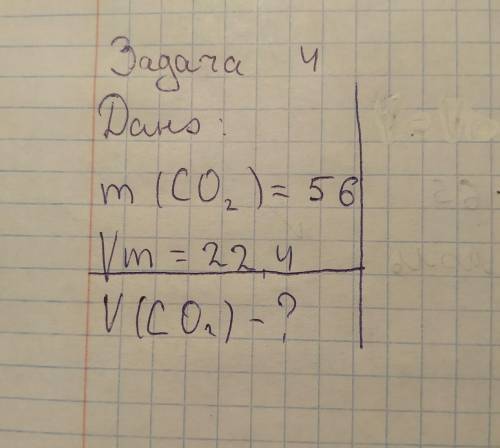 Задача 4
Дано:
m (CO₂) = 56
Vm = 22,4
V (CO₂) - ?